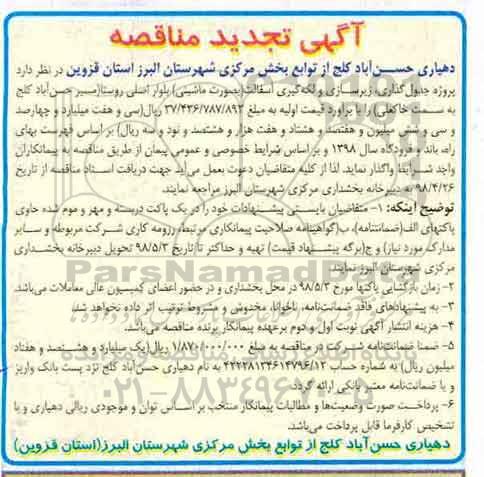 آگهی تجدید مناقصه
دهیاری حسـن‌آباد کلج از توابع بخش مرکزی شهرستان البرز استان قزوین در نظر دارد
پروژه جدول‌گذاری، زیرسازی و لکه‌گیری آسفالت(بصورت ماشینی) بلوار اصلی روستا(مسیر حسن‌آباد کلج
به سـمت خاکعلی) را با برآورد قیمت اولیه به مبلغ ۳۷/۴۳۶/۷۸۷/۸۹۳ ریال(سی و هفت میلیارد و چهارصد
و سی و شش میلیون و هفتصد و هشتاد و هفت هزار و هشتصد و نود و سه ریال) بر اساس فهرست بهای
راه، باند و فرودگاه سال ۱۳۹۸ و بر اساس شرایط خصوصی و عمومی پیمان از طریق مناقصه به پیمانکاران
واجد شـرایط واگذار نماید. لذا از کلیه متقاضیان دعوت بعمل می‌آید جهت دریافت اسـناد مناقصه از تاریخ
۹۸/۴/۲۶ به دبیرخانه بخشداری مرکزی شهرستان البرز مراجعه نمایند.
توضیح اینکه: ۱- متقاضیان بایستی پیشـنهادات خود را در یک پاکت دربسته و مهر و موم شده حاوی
پاکتهای الف(ضمانتنامه)، ب(گواهینامه صلاحیت پیمانکاری مرتبط، رزومه کاری شـرکت مربوطه و سایر
مدارک مورد نیاز) و ج(برگه پیشـنهاد قیمت) تهیه و حداکثر تا تاریخ ۹۸/۵/۳ تحویل دبیرخانه بخشـداری
مرکزی شهرستان البرز نمایند.
۲- زمان بازگشایی پاکتها مورخ ۹۸/۵/۳ در محل بخشداری و در حضور اعضای کمیسیون عالی معاملات می‌باشد.
۳- به پیشنهادهای فاقد ضمانت‌نامه، ناخوانا، مخدوش و مشروط ترتیب اثر داده نخواهد شد.
۴- هزینه انتشار آگهی نوبت اول و دوم برعهده پیمانکار برنده مناقصه می‌باشد.
۵- ضمنا ضمانت‌نامه شـرکت در مناقصه به مبلغ ۱/۸۷۰/۰۰۰/۰۰۰ ریال(یک میلیارد و هشـتصد و هفتاد
میلیون ریال) به شماره حساب ۴۲۲۲۸۱۳۴۶۱۴۷۹۶/۱۳ به نام دهیاری حسن‌آباد کلج نزد پست بانک واریز
و یا ضمانت‌نامه معتبر بانکی ارائه گردد.
۶- پرداخـت صورت وضعیت‌ها و مطالبات پیمانکار منتخب بر اسـاس توان و موجودی ریالی دهیاری و با
تشخیص کارفرما قابل پرداخت می‌باشد.
دهیاری حسن‌آباد کلج از توابع بخش مرکزی شهرستان البرز(استان قزوین)
ParsNamadData
۰۲۱-۸۸۳۴۹۶۷۰-۵